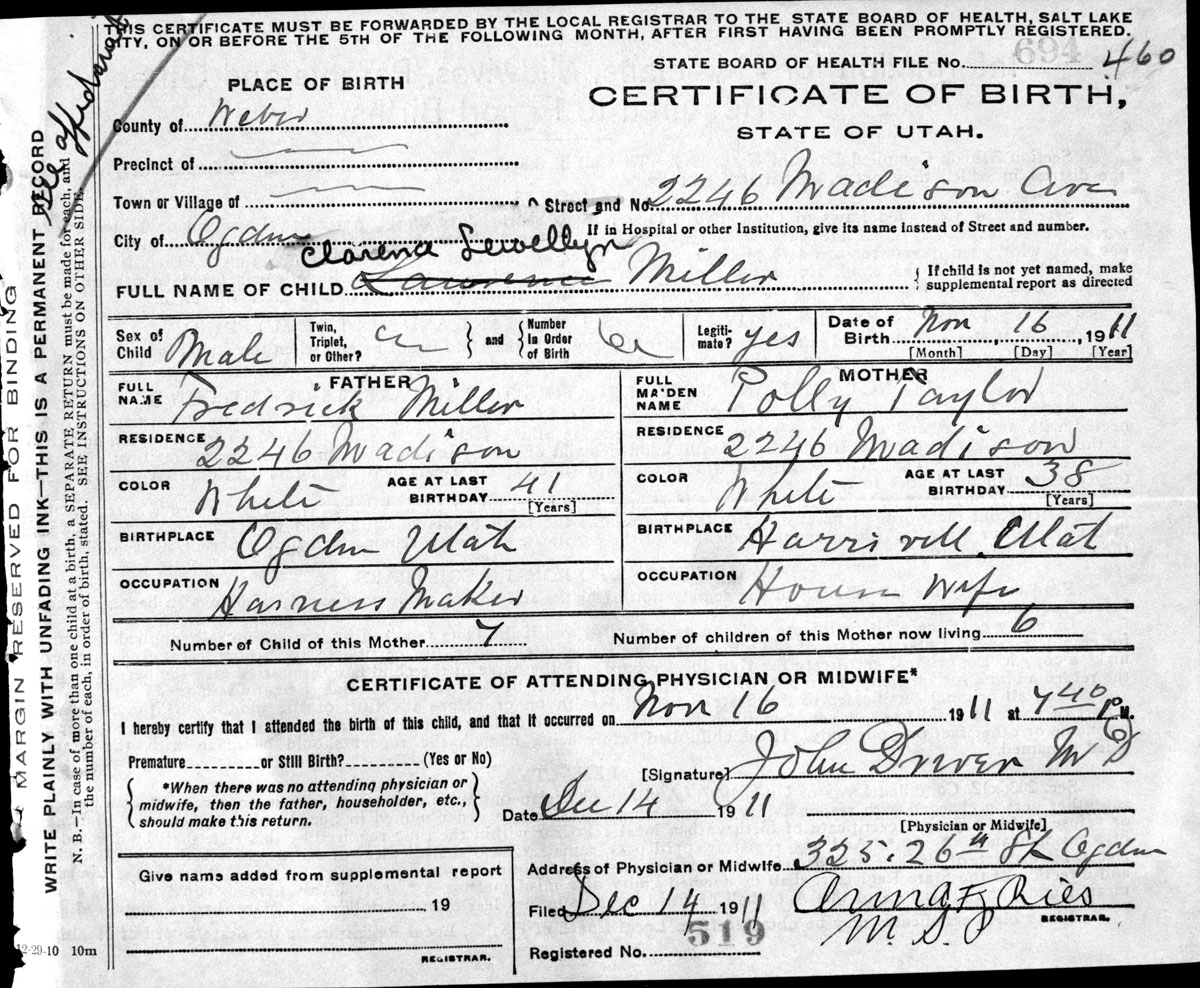 THIS CERTIFICATE MUST BE FORWARDED BY THE LOCAL REGISTRAR TO THE STATE BOARD OF HEALTH, SALT LAKE
CITY, ON OR BEFORE THE 5TH OF THE FOLLOWING MONTH, AFTER FIRST HAVING BEEN PROMPTLY REGISTERED.
See affidavit
694
STATE BOARD OF HEALTH FILE No. 460
PLACE OF BIRTH
CERTIFICATE OF BIRTH,
STATE OF UTAH.
County of Weber
Precinct of
Town or Village of
Street and No. 2246 Madison Ave
City of Ogden
If in Hospital or other Institution, give its name instead of Street and number.
Clarence Lewellyn
FULL NAME OF CHILD Lawrence Miller
If child is not yet named, make
supplemental report as directed
Sex of Child Male
Twin, Triplet, or Other?
and
Number in Order of Birth
Legiti-mate? yes
Date of Birth Nov 16, 1911
[Month] [Day] [Year]
FATHER
FULL NAME Fredrick Miller
RESIDENCE 2246 Madison
COLOR White AGE AT LAST BIRTHDAY 41
[Years]
BIRTHPLACE Ogden Utah
OCCUPATION Harness Maker
MOTHER
FULL MAIDEN NAME Polly Taylor
RESIDENCE 2246 Madison
COLOR White AGE AT LAST BIRTHDAY 38
[Years]
BIRTHPLACE Harrisvill Utah
OCCUPATION House Wife
Number of Child of this Mother 7
Number of children of this Mother now living 6
CERTIFICATE OF ATTENDING PHYSICIAN OR MIDWIFE*
I hereby certify that I attended the birth of this child, and that it occurred on Nov 16 1911 at 7 40 P M.
Premature or Still Birth? (Yes or No)
[Signature] John Driver MD
*When there was no attending physician or
midwife, then the father, householder, etc.,
should make this return.
Date Dec 14 1911
[Physician or Midwife]
Address of Physician or Midwife 325. 26th St Ogden
Give name added from supplemental report
19
REGISTRAR.
Filed Dec 14 1911 Anna F Ries
REGISTRAR.
519
Registered No.
12-29-10 10m
MARGIN RESERVED FOR BINDING
WRITE PLAINLY WITH UNFADING INK—THIS IS A PERMANENT RECORD
N. B.—In case of more than one child at a birth, a SEPARATE RETURN must be made for each, and
the number of each, in order of birth, stated. SEE INSTRUCTIONS ON OTHER SIDE.